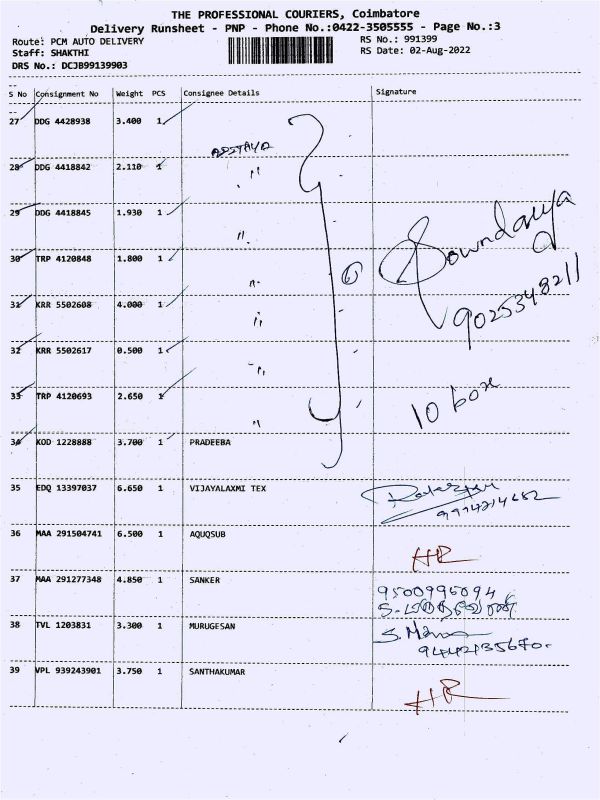 THE PROFESSIONAL COURIERS, Coimbatore
Delivery Runsheet - PNP - Phone No.:0422-3505555 - Page No.:3
Route: PCM AUTO DELIVERY
RS No.: 991399
Staff: SHAKTHI
RS Date: 02-Aug-2022
DRS No.: DCJB99139903
S No Consignment No Weight PCS Consignee Details Signature
27 DDG 4428938 3.400 1
28 DDG 4418842 2.110 1 "
29 DDG 4418845 1.930 1 "
30 TRP 4120848 1.800 1 "
31 KRR 5502608 4.000 1 "
32 KRR 5502617 0.500 1 "
33 TRP 4120693 2.650 1 "
Soundarya
9025348211
10 box
34 KOD 1228888 3.700 1 PRADEEBA
35 EDQ 13397037 6.650 1 VIJAYALAXMI TEX
36 MAA 291504741 6.500 1 AQUQSUB HR
37 MAA 291277348 4.850 1 SANKER 9500995094
38 TVL 1203831 3.300 1 MURUGESAN
39 VPL 939243901 3.750 1 SANTHAKUMAR HR